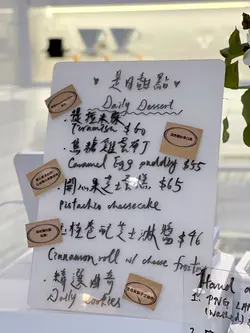 是日甜點
Daily Dessert
提拉米蘇
Tiramisu $60
焦糖雞蛋布丁
Caramel Egg pudding $55
開心果芝士蛋糕 $65
Pistachio cheesecake
肉桂卷配芝士淋醬 $46
Cinnamon roll w/ cheese frosting
精選曲奇
Daily Cookies
Hand
1. PNG